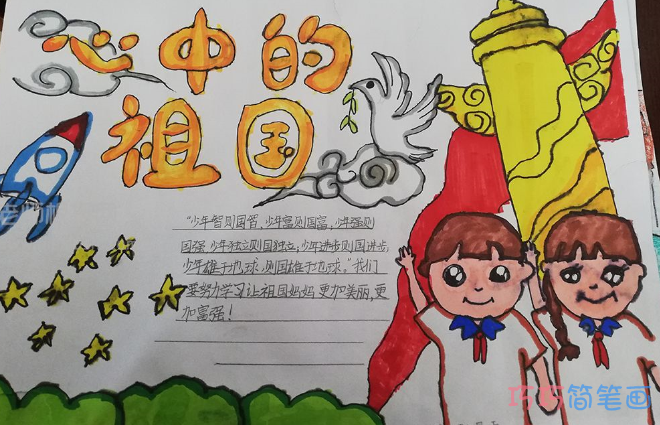 心中的
祖国
“少年智则国智，少年富则国富，少年强则
国强，少年独立则国独立；少年进步则国进步，
少年雄于地球，则国雄于地球。”我们
要努力学习让祖国妈妈更加美丽，更
加富强！
简笔画